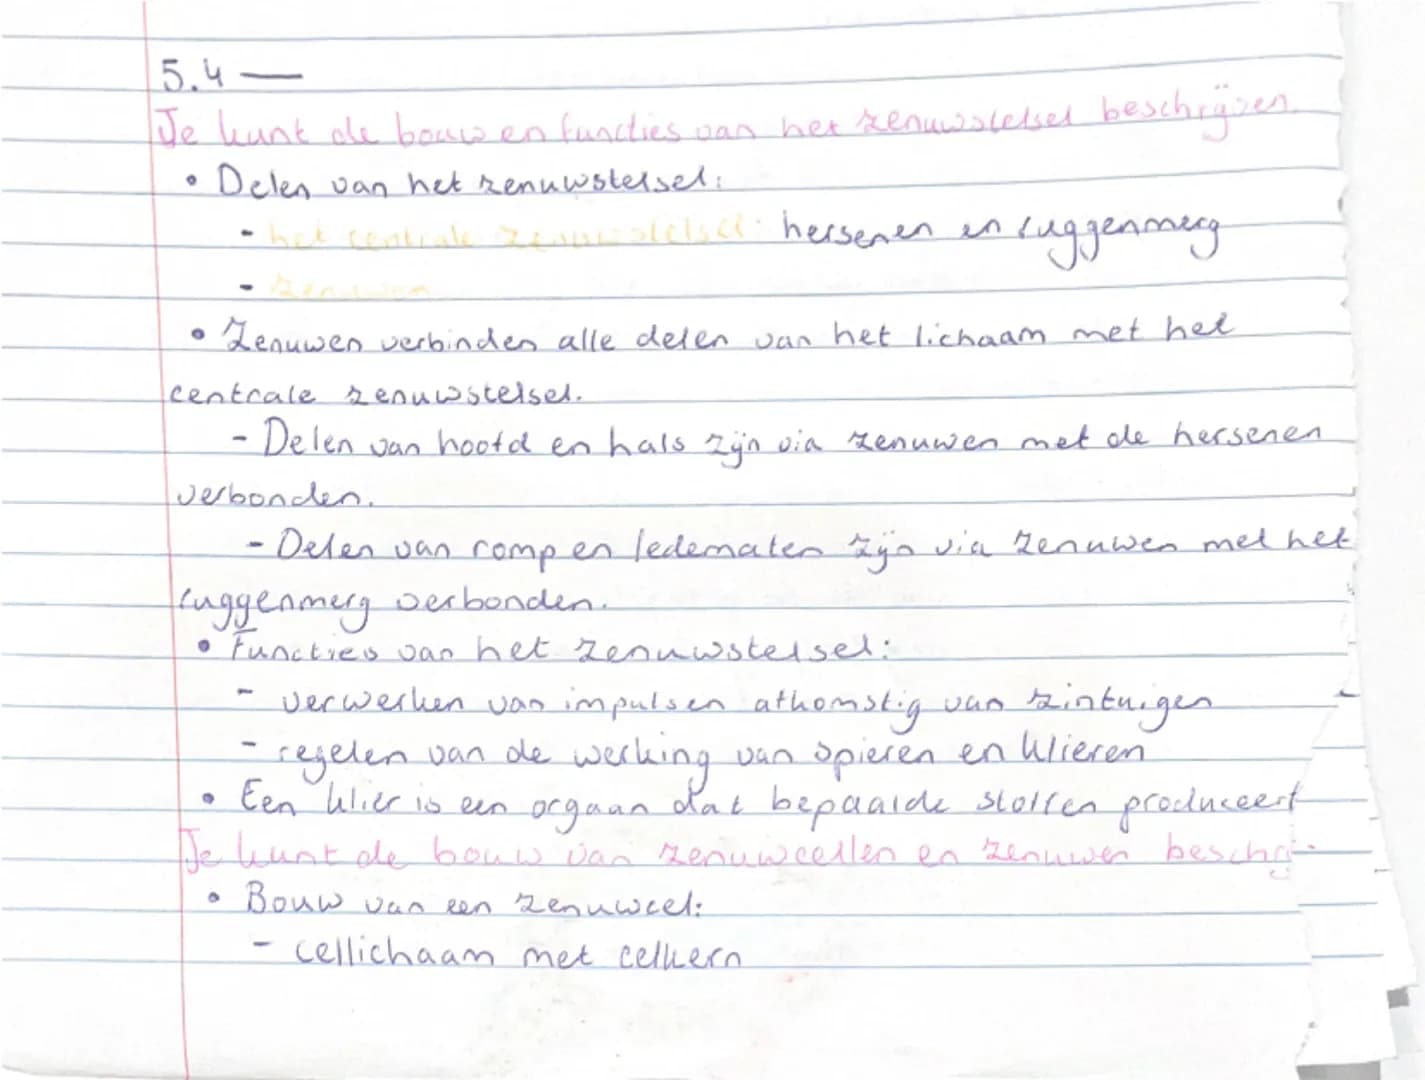 5.4 —
Je kunt de bouw en functies van het zenuwstelsel beschrijven.
• Delen van het zenuwstelsel:
- het centrale zenuwstelsel: hersenen en ruggenmerg
- zenuwen
• Zenuwen verbinden alle delen van het lichaam met het
centrale zenuwstelsel.
- Delen van hoofd en hals zijn via zenuwen met de hersenen
verbonden.
- Delen van romp en ledematen zijn via zenuwen met het
ruggenmerg verbonden.
• Functies van het zenuwstelsel:
- verwerken van impulsen afkomstig van zintuigen
- regelen van de werking van spieren en klieren
• Een klier is een orgaan dat bepaalde stoffen produceert
Je kunt de bouw van zenuwcellen en zenuwen beschr.
• Bouw van een zenuwcel:
- cellichaam met celkern